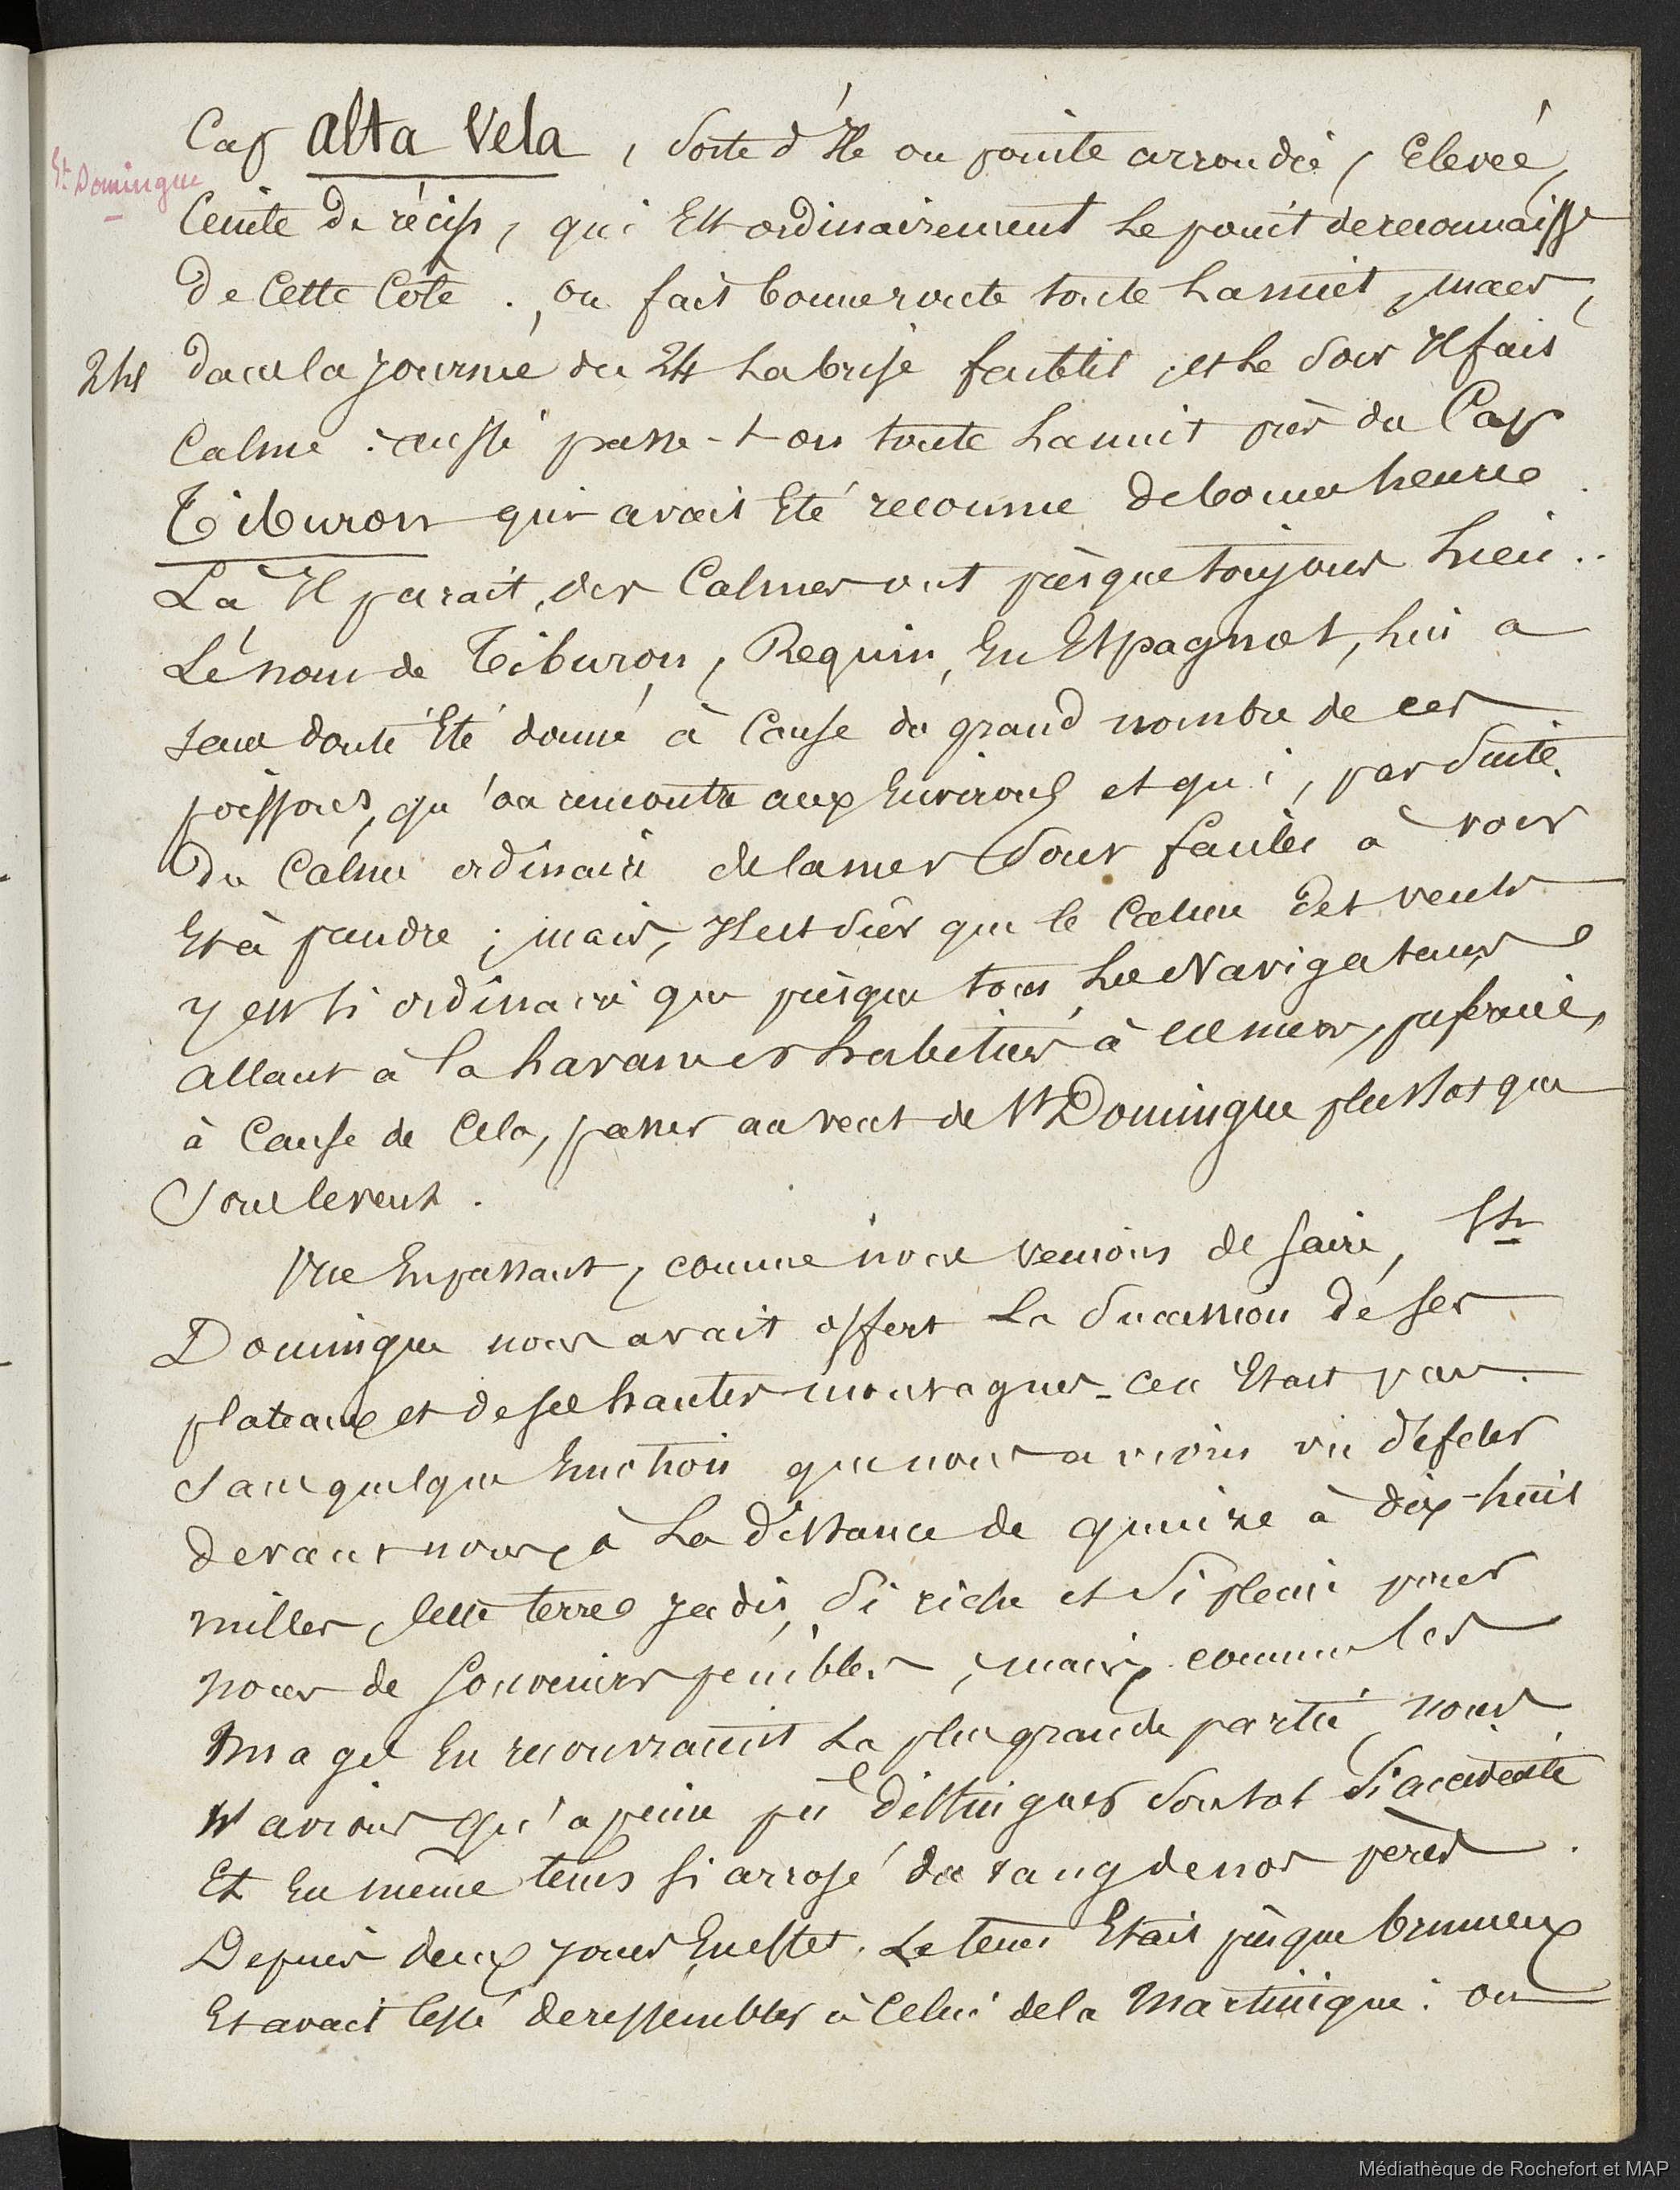 Cap Alta Vela, Sorte d'Ile ou pointe arrondie, Elevée,
St Domingue
Ceinte de récifs, qui Est ordinairement Le point de reconnaisse
de Cette Côte ., on fait bonne route toute La nuit, mais,
24 dans la journée du 24 La brise faiblit, et Le Soir Il fait
Calme : aussi passe-t-on toute La nuit près du Cap
Tiburon qui avait Eté reconnu de bonne heure.
Là Il parait, des Calmes ont presque toujours Lieu..
Le nom de Tiburon, Requin, En Espagnol, Lui a
sans doute Eté donné à Cause du grand nombre de ces
poissons, qu'on rencontre aux Environs et qui, par Suite
du Calme ordinaire de la mer Sont faciles à voir
Et à prendre ; mais, Il est Sûr que le Calme des vents
y est si ordinaire que presque tous Les Navigateurs
allant à la havanne habitués à ces mers, préfèrent,
à Cause de Cela, passer au vent de St Domingue plustot que
Sous le vent.
Vue En passant, comme nous venions de faire, St
Domingue nous avait offert La Succession de ses
plateaux et de ses hautes montagnes - ce n'Etait pas
sans quelque Emotion que nous avions vu défiler
devant nous, à La distance de quinze à dix-huit
milles, Cette terre jadis, Si riche et Si pleine pour
nous de Souvenirs pénibles, mais, comme les
nuages En recouvraient La plus grande partie, nous
n'avions qu'à peine pu distinguer Son sol Si accidenté
Et En même tems si arrosé du sang de nos pères.
Depuis deux jours En effet. Le tems Etait presque brumeux
Et avait Cessé de ressembler à Celui de la Martinique : on
Médiathèque de Rochefort et MAP